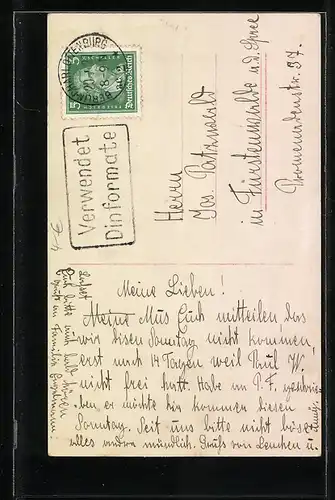 CHARLOTTENBURG
5 5
Deutsches Reich
Verwendet
Dinformate
Herrn
Jos. Patzwald
in Fürstenwalde a.d. Spree
Promenadenstr. 37.
Meine Lieben!
Meine Mus Euch mitteilen das
wir disen Sonntag nicht kommen,
erst nach 14 Tagen weil Paul W.
nicht frei hatt. Habe an P.F. geschrie-
ben er möchte hin kommen diesen
Sonntag. Seit uns bitte nicht böse
alles andre mündlich. Gruß von Lenchen u.
Euch bitte auch bald hören
Gruß an Familie